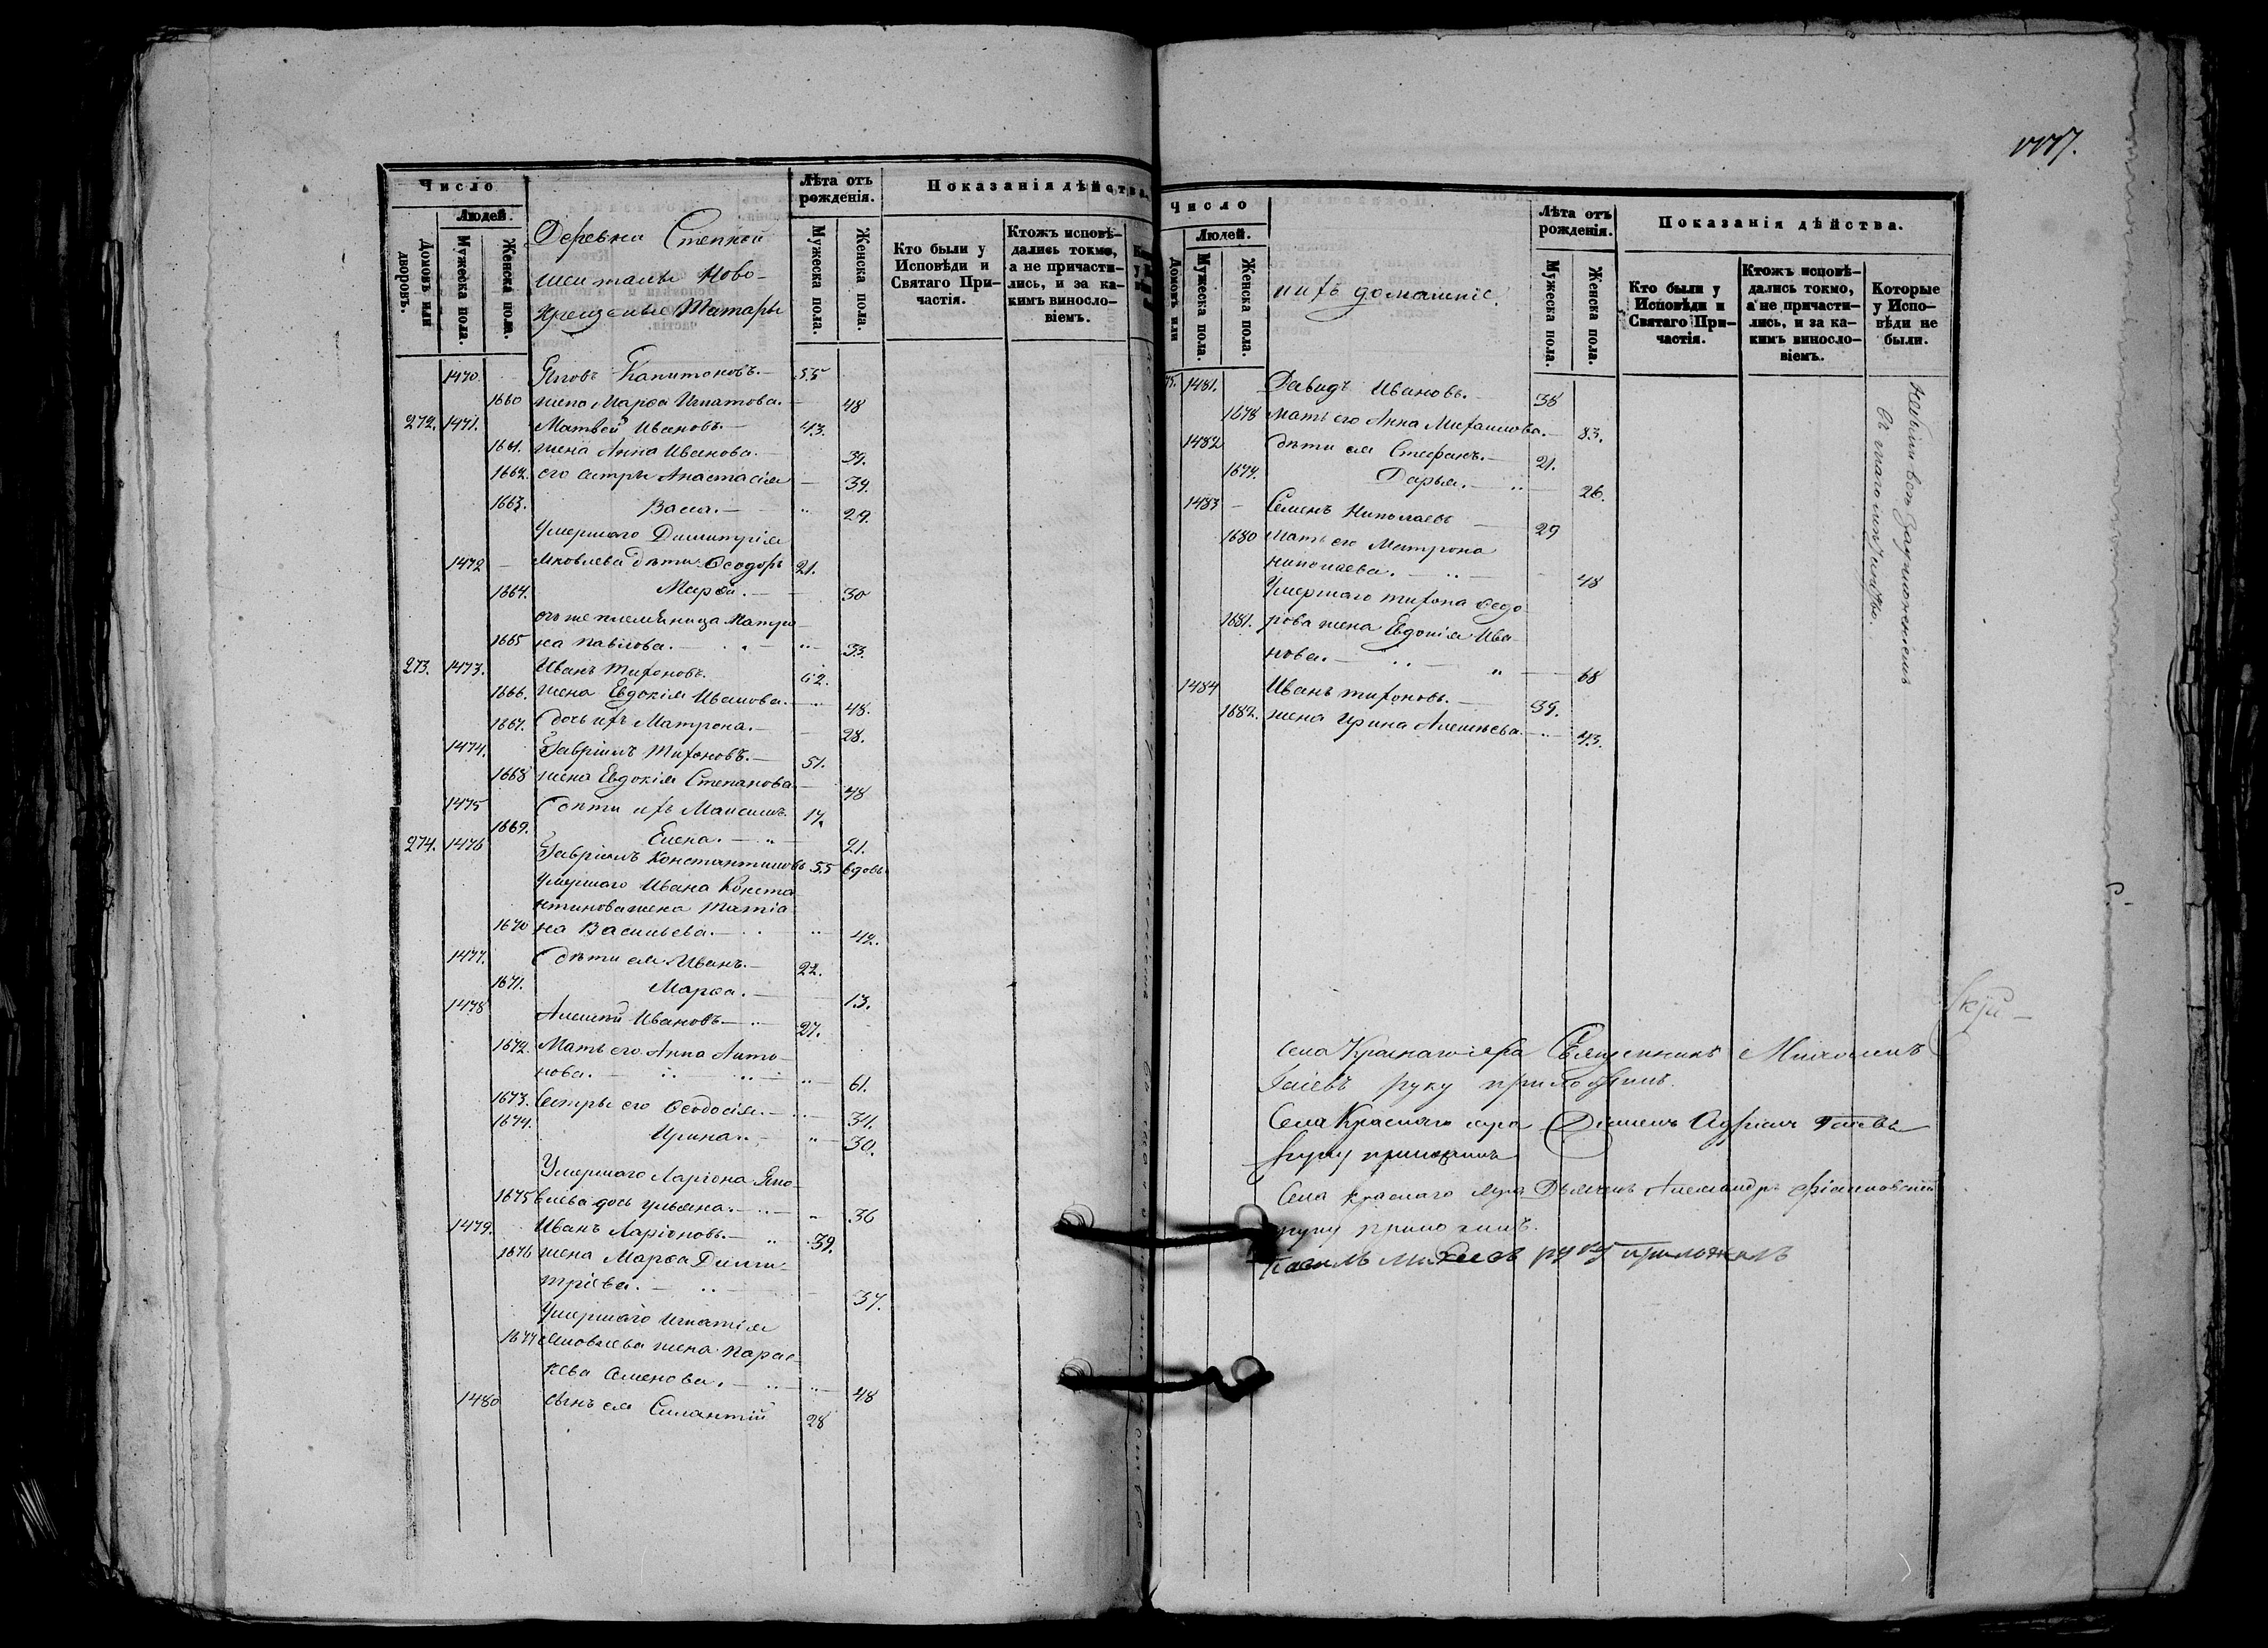 Число
Людей.
Домовъ или дворовъ.
Мужеска пола.
Женска пола.
Деревни Степной
шенталы Ново-
крещеные Татары
Лѣта отъ рожденія.
Мужеска пола.
Женска пола.
Показанія дѣйства.
Кто были у Исповѣди и Святаго Причастія.
Ктожъ исповѣдались токмо, а не причастились, и за какимъ винословіемъ.
1470. Яковъ Капитоновъ. — 55
1660 жена Марѳа Игнатова. — 48
272. 1471. Матвей Ивановъ. — 43.
1661. жена Анна Иванова. — 39.
1662. его сестры Анастасія — 39.
1663. Васса. — 29.
Умершаго Димитрія
1472 — Яковлева дѣти Ѳеодоръ 21.
1664. Марѳа. — 30
его же племяница Матро-
1665 на Павлова. — 33.
273. 1473. Иванъ Тихоновъ. 62.
1666. жена Евдокія Иванова. — 48.
1667. дочь ихъ Матрона. — 28.
1474. Гавріилъ Тихоновъ. — 51.
1668 жена Евдокія Степанова — 48
1475 дѣти ихъ Максимъ 17.
1669. Елена. — 21.
274. 1476 Гавріилъ Константиновъ 55 вдовъ
Умершаго Ивана Конста-
нтинова жена Татіа-
1670 на Васильева. — 42.
1477. дѣти ея Иванъ. — 22.
1671. Марѳа. — 13.
1478 Алексѣй Ивановъ — 27.
1672. Мать его Анна Анто-
нова. — 61.
1673. Сестры его Ѳеодосія. — 34.
1674. Ирина. — 30.
Умершаго Ларіона Яко-
1675 влева дочь Ульяна. — 36
1479. Иванъ Ларіоновъ. — 39.
1676 жена Марѳа Дими-
тріева. — 37.
Умершаго Игнатія
1677 Яковлева жена Парас-
кева Семенова. — 48
1480 сынъ ея Силантій 28
1777.
Число
Людей.
Домовъ или
Мужеска пола.
Женска пола.
ихъ домашніе.
Лѣта отъ рожденія.
Мужеска пола.
Женска пола.
Показанія дѣйства.
Кто были у Исповѣди и Святаго Причастія.
Ктожъ исповѣдались токмо, а не причастились, и за какимъ винословіемъ.
Которые у Исповѣди не были.
1481. Давидъ Ивановъ. — 38
1678 мать его Анна Михайлова. — 83.
1482 дѣти ея Стефанъ. — 21.
1679. Дарья. — 26.
1483 — Семенъ Николаевъ — 29
1680 мать его Матрона
николаева. — 48
Умершаго Тихона Ѳедо-
1681. рова жена Евдокія Ива-
нова. — 68
1484 Иванъ Тихоновъ. — 39.
1682. жена Ирина Алексѣева. — 43.
Села Краснаго яра Священникъ Михаилъ
руку приложилъ.
Села Краснаго яра Діаконъ
руку приложилъ
Села Краснаго Яра Дьячекъ Александръ
руку приложилъ.
руку приложилъ